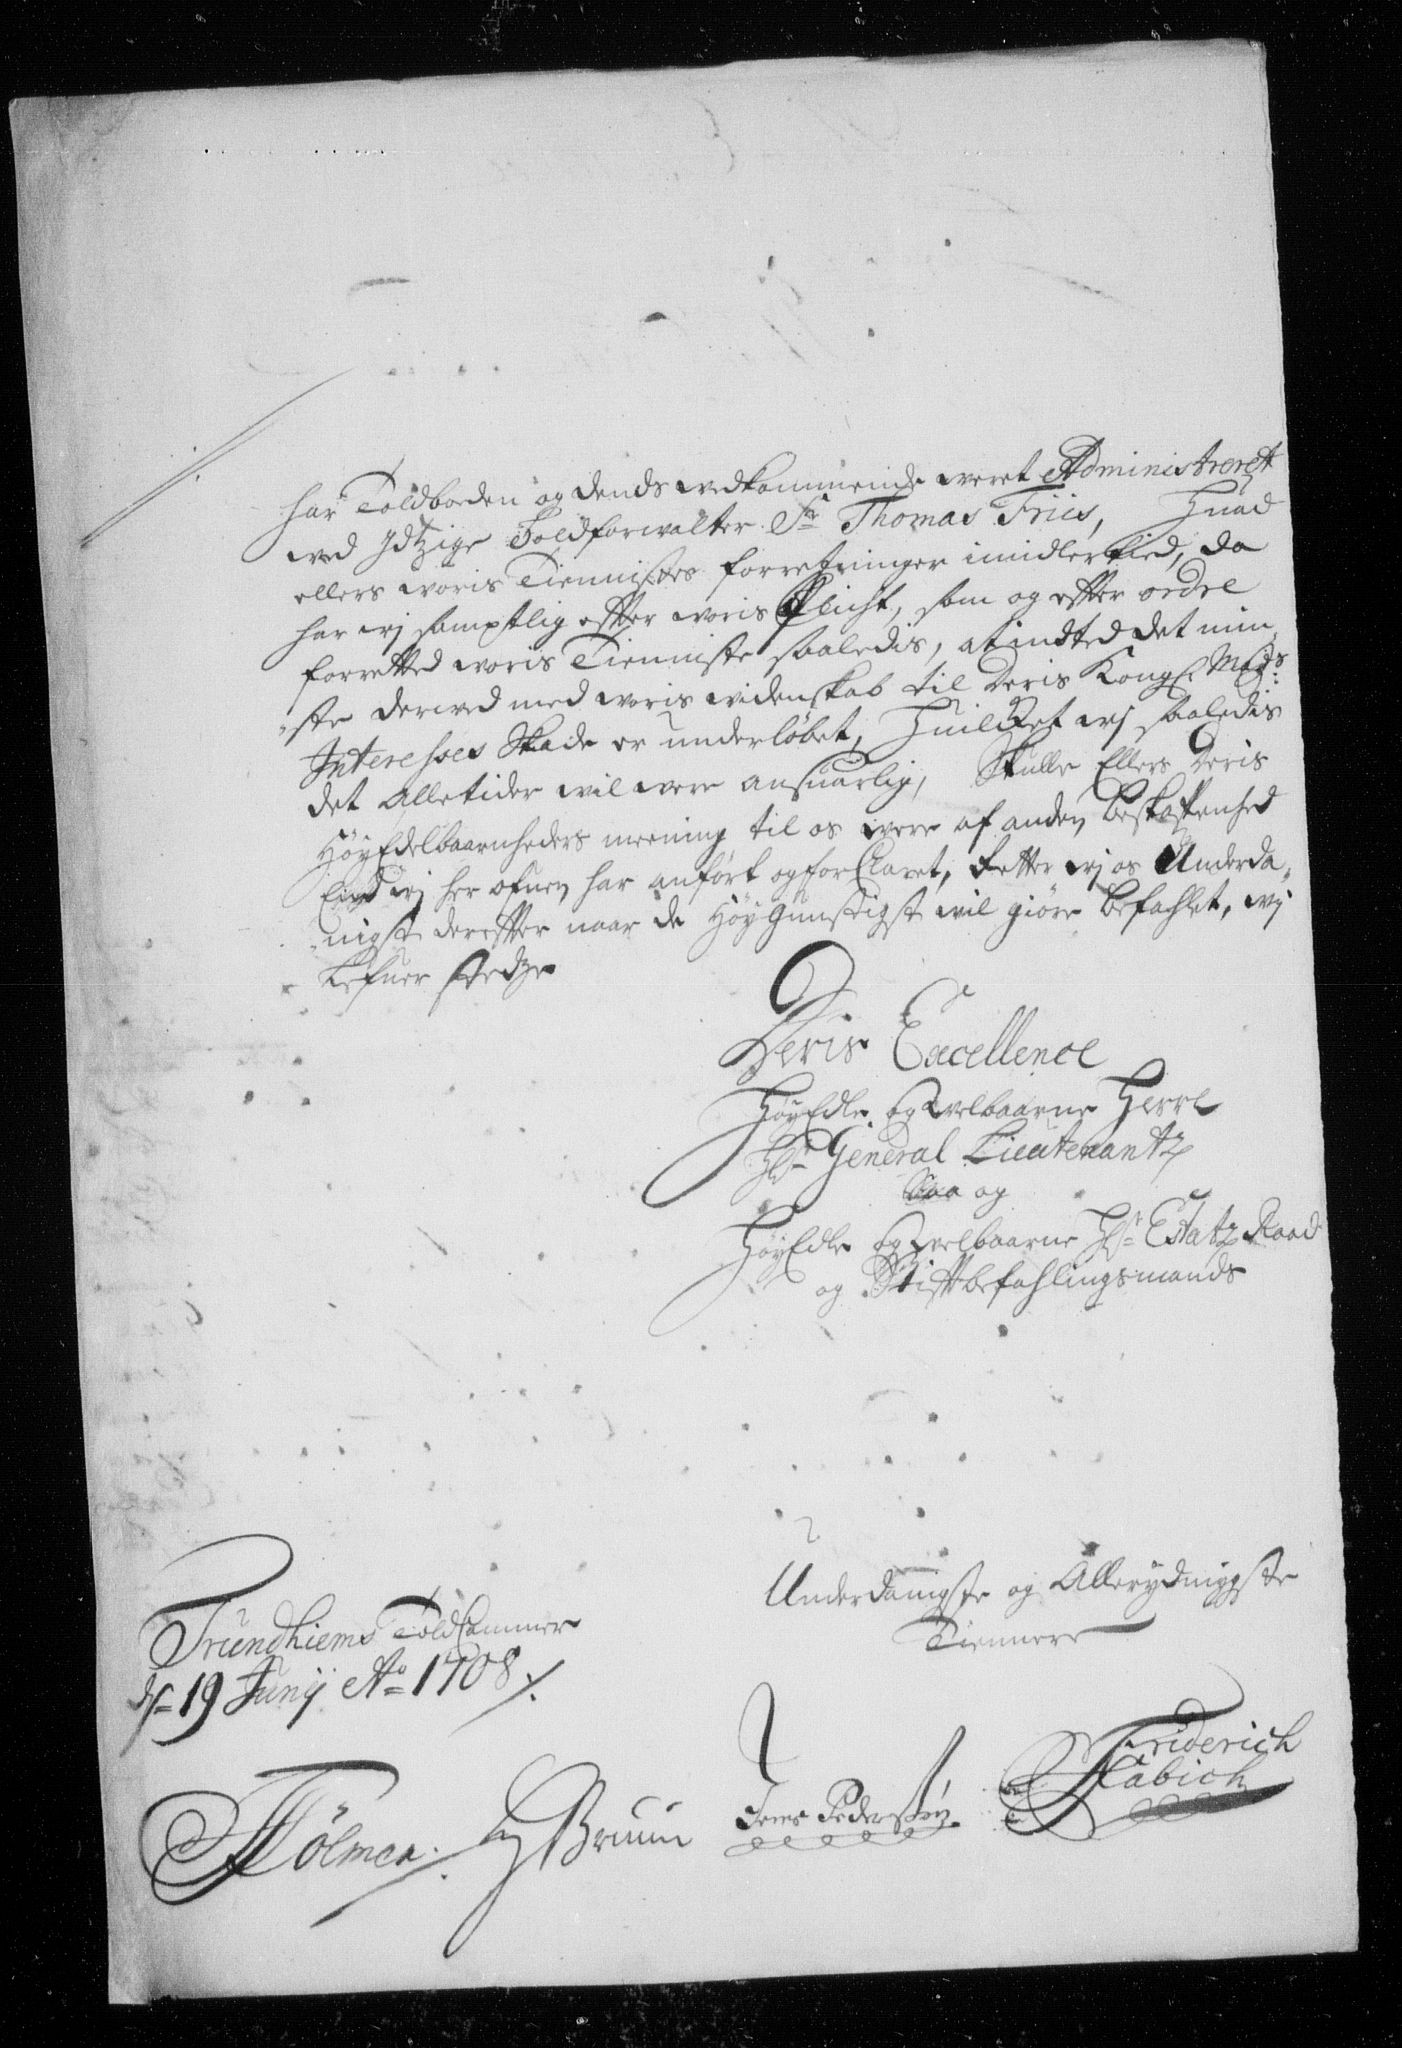 har Toldboden og dends vedkommende veret Administreret
ved Jdtzige Toldforvalter Sr Thomas Friis, Huad
ellers voris Tiennistes forretninger imidlertied, da
har vj samptlig effter voris Plicht, som og effter ordre
forretted voris Tienniste saaledis, at indted det min,,
,,ste derved med voris videnskab til Deris Kongl: Mayts:
Interesses Skade er underløbet, Huilcket vj saaledis
det Alletider vil vere ansuarlig, Skulle Ellers Deris
HøyEdelbaarnheders meening til os vere af anden beskaffenhed
End vj her ofuen har anført og forClaret, Retter vj os Underda,,
,,nigst dereffter naar de Høygunstigst vil giøre befahlet, vj
Lefuer stedze
Deris Excellence
HøyEdle og Velbaarne Herre
Hr General Lieutenantz
Saa og
HøyEdle og Velbaarne Hr Etatz Raad
og Stiftbefahlingsmands
Underdanigste og Allerydmygste
Tiennere
Trundhiems ToldCammer
d 19 Junij Ao 1708
Tølmer. Bruun Jens Pedersøn Friderich
Fabich